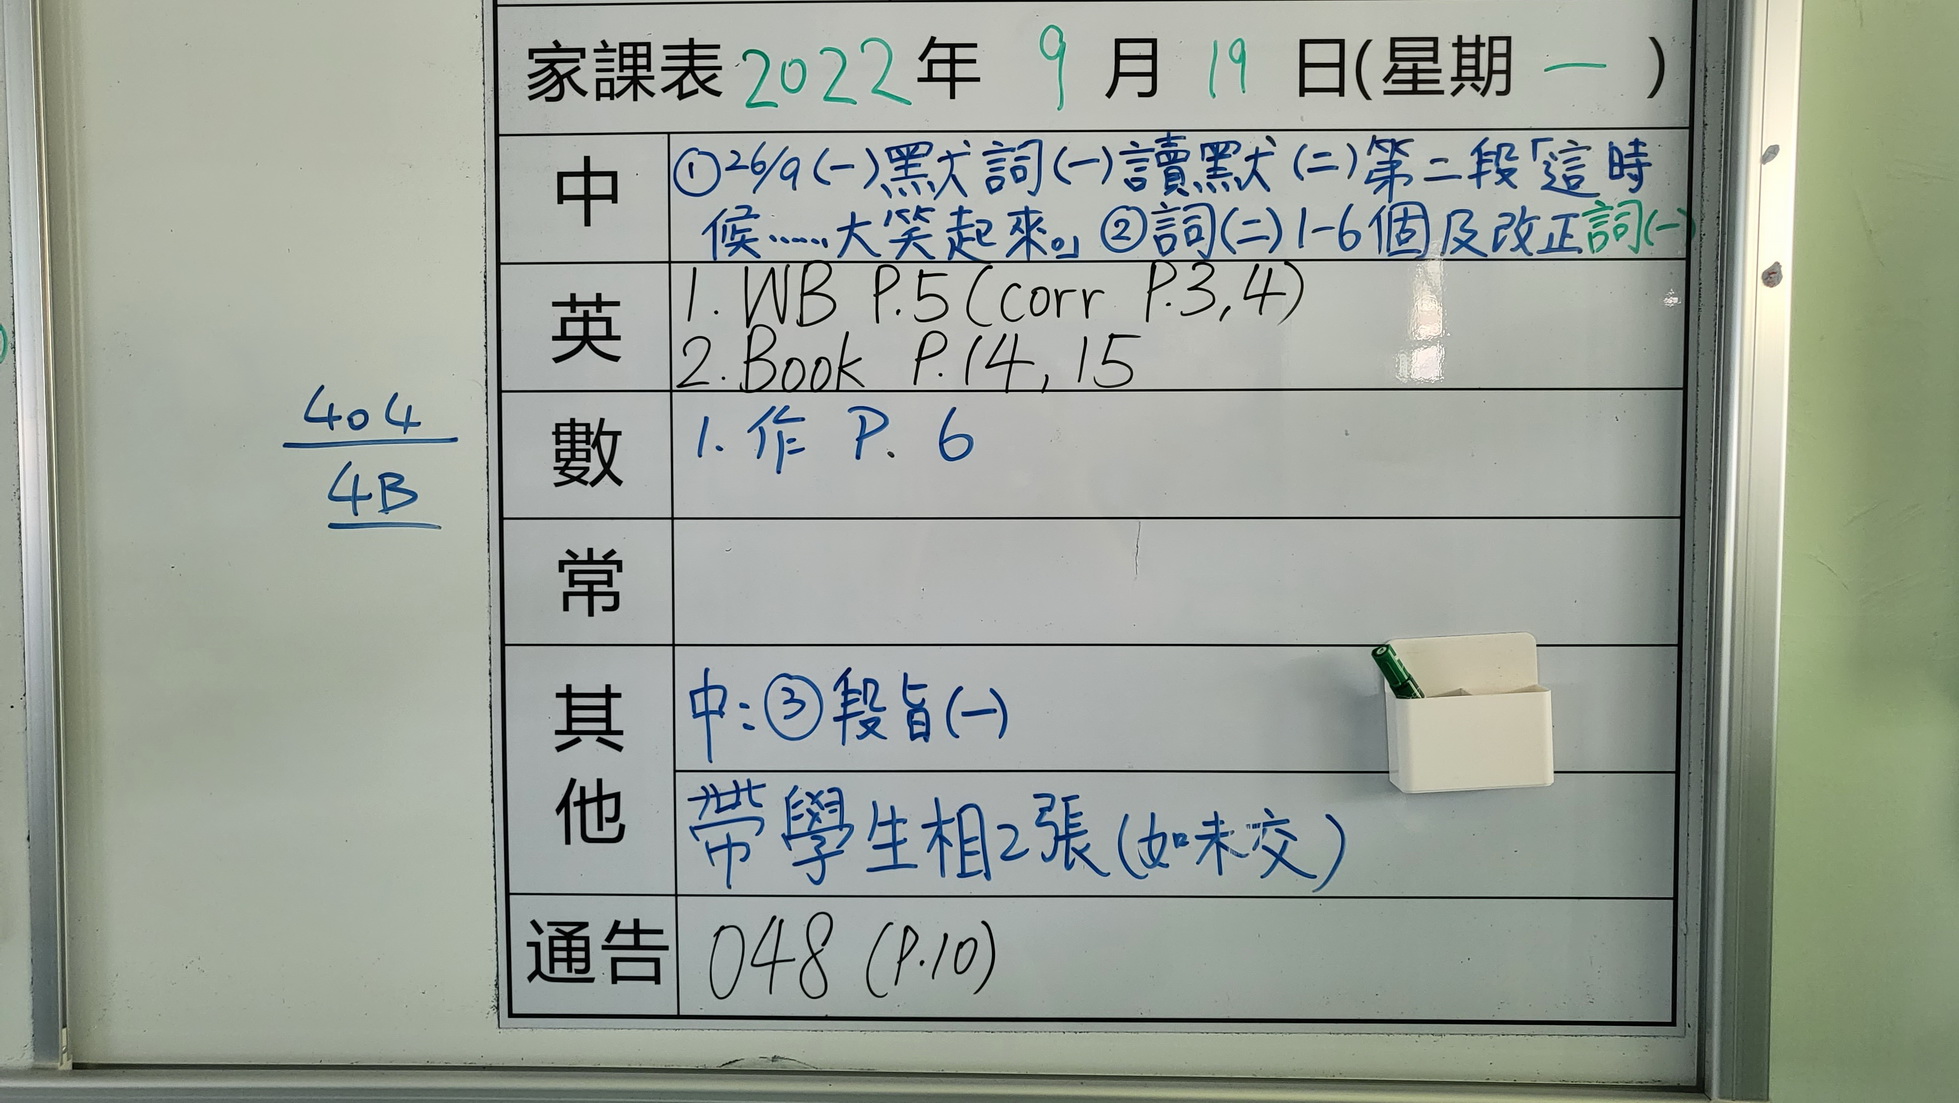 家課表 2022年 9月 19日(星期一)
中
①26/9(一)默詞(一)讀默(二)第二段「這時
候……大笑起來。」②詞(二)1-6個及改正詞(一)
英
1. WB P.5 (corr P.3,4)
2. Book P.14, 15
404
4B
數
1. 作 P. 6
常
其他
中:③段旨(一)
帶學生相2張(如未交)
通告
048 (P.10)